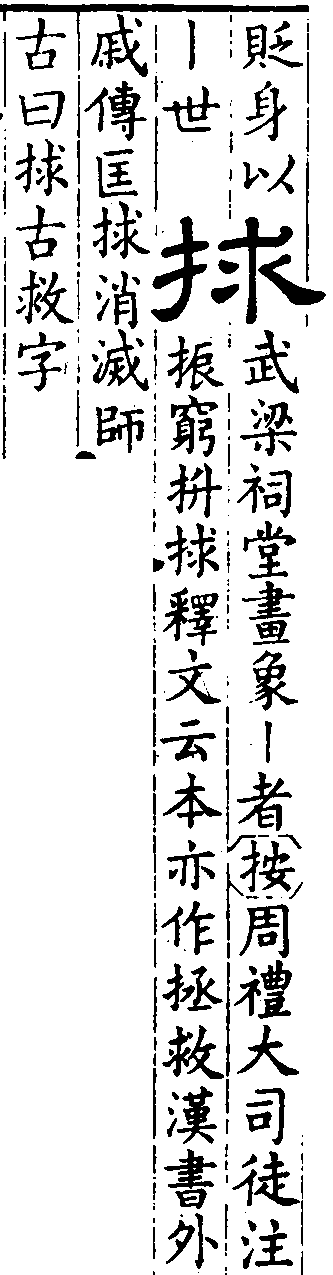 貶身以
丨世
捄
武梁祠堂畫象丨者按周禮大司徒注
振窮抍捄釋文云本亦作拯救漢書外
戚傳匡捄消滅師
古曰捄古救字